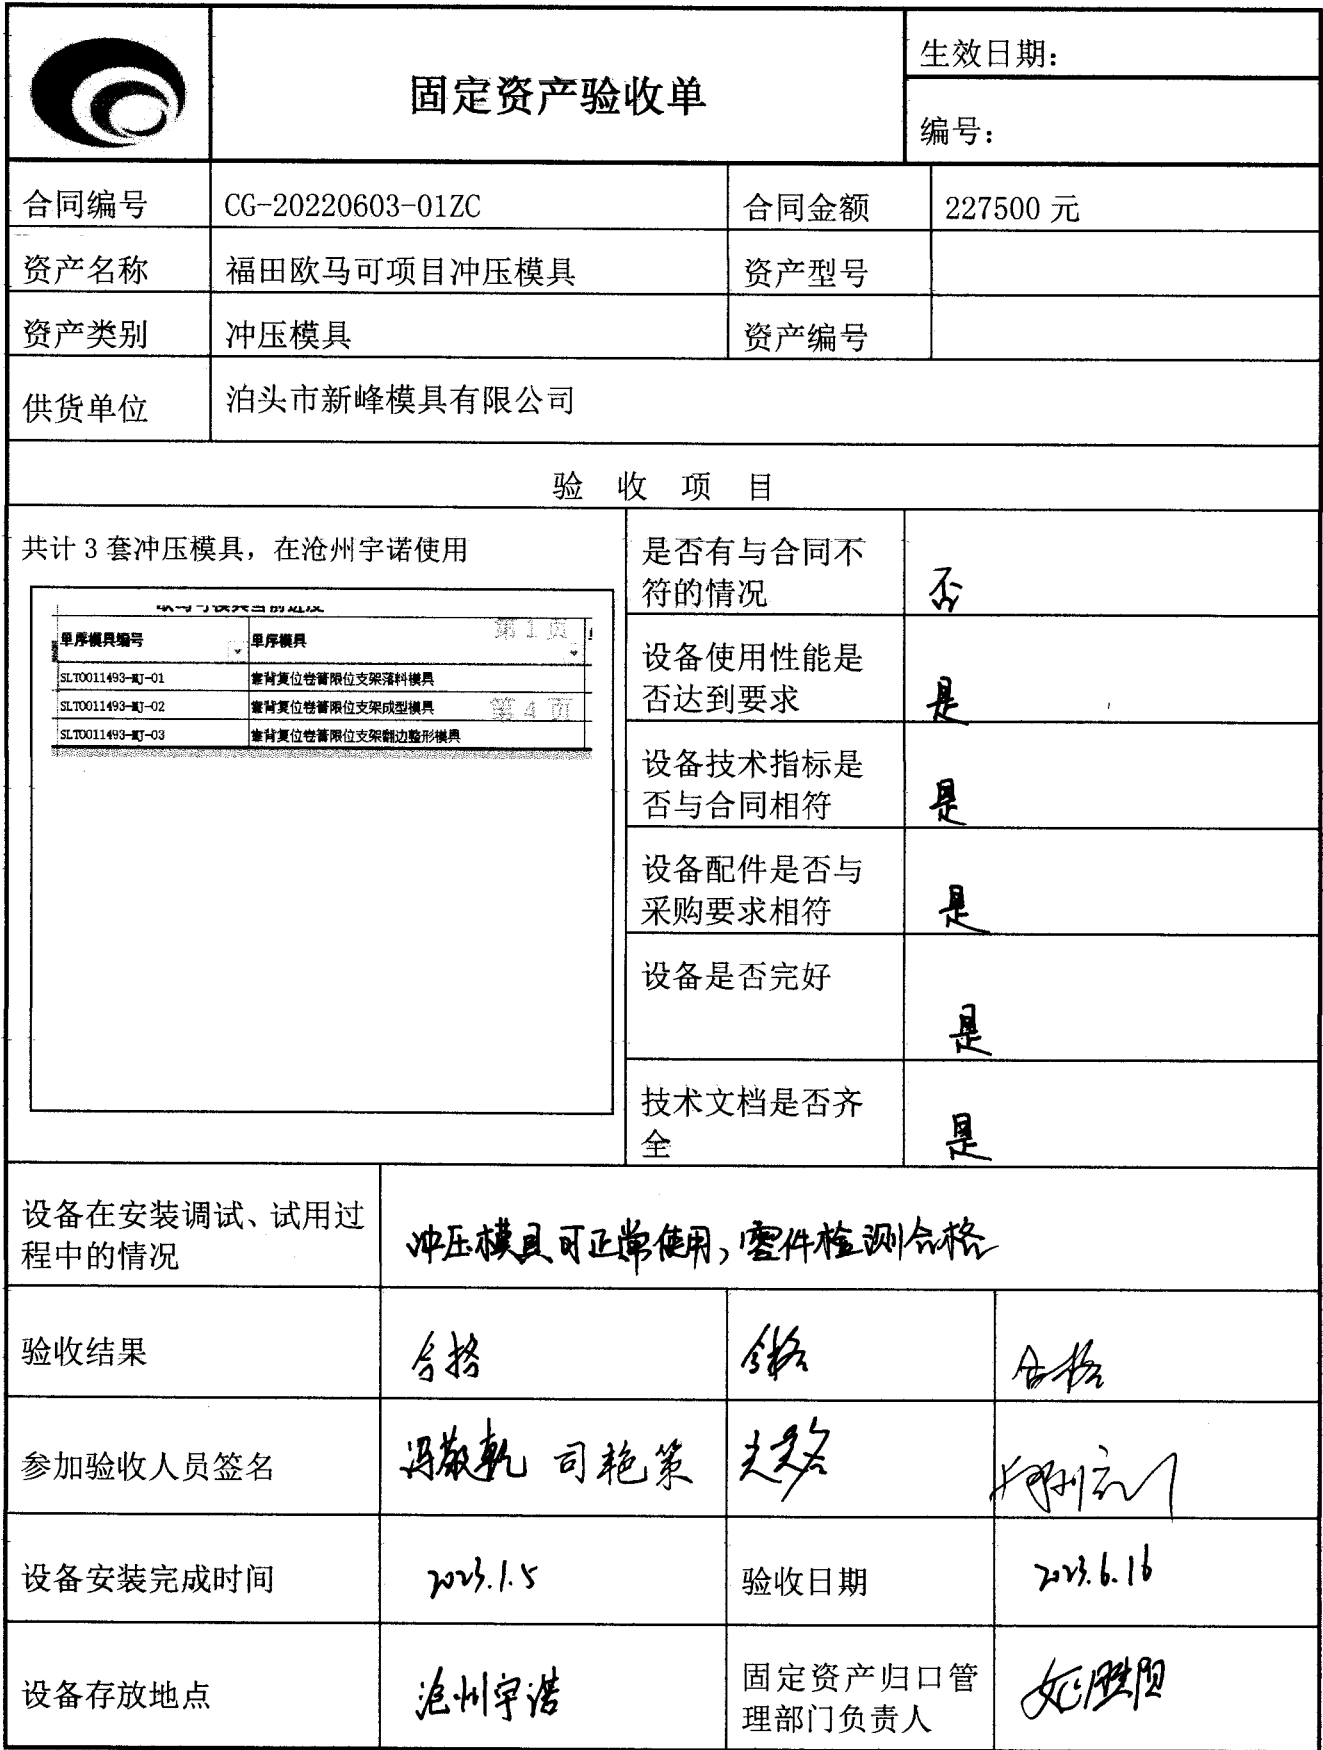 固定资产验收单
生效日期：
编号：
合同编号 CG-20220603-01ZC 合同金额 227500 元
资产名称 福田欧马可项目冲压模具 资产型号
资产类别 冲压模具 资产编号
供货单位 泊头市新峰模具有限公司
验 收 项 目
共计 3 套冲压模具，在沧州宇诺使用
欧马可模具当前进度
单序模具编号 单序模具
第 1 页
SLT0011493-MJ-01 靠背复位卷簧限位支架落料模具
SLT0011493-MJ-02 靠背复位卷簧限位支架成型模具
第 4 页
SLT0011493-MJ-03 靠背复位卷簧限位支架翻边整形模具
是否有与合同不
符的情况
否
设备使用性能是
否达到要求
是
设备技术指标是
否与合同相符
是
设备配件是否与
采购要求相符
是
设备是否完好
是
技术文档是否齐
全
是
设备在安装调试、试用过
程中的情况
冲压模具可正常使用，零件检测合格
验收结果 合格 合格 合格
参加验收人员签名 冯敬乾 司艳策
设备安装完成时间 2023.1.5 验收日期 2023.6.16
设备存放地点 沧州宇诺
固定资产归口管
理部门负责人